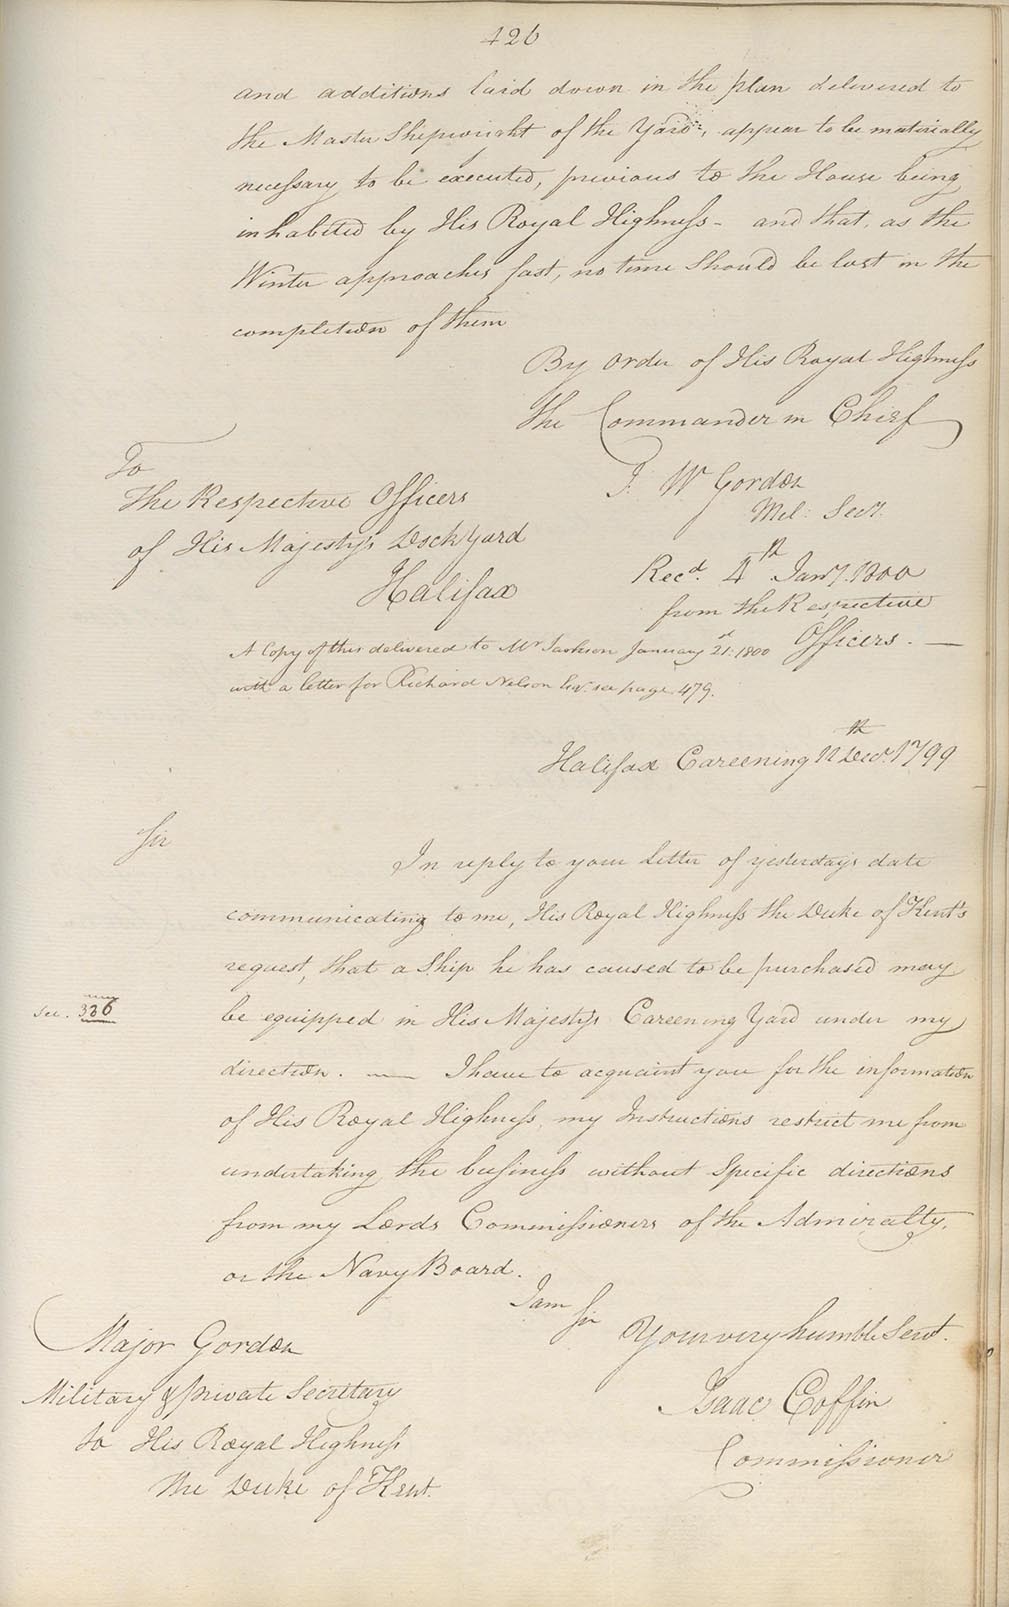 426
and additions laid down in the plan delivered to
the Master Shipwright of the Yard, appear to be materially
necessary to be executed, previous to the House being
inhabited by His Royal Highness - and that, as the
Winter approaches fast, no time should be lost in the
completion of them
By order of His Royal Highness
the Commander in Chief
J. W Gordon
Mil: Secy.
To
The Respective Officers
of His Majesty's Dock Yard
Halifax
Recd. 4th Jany. 1800
from the Respective
Officers. —
A Copy of this delivered to Mr Jackson January 21st: 1800
with a letter for Richard Nelson Esqr. see page 479.
Halifax Careening 12th Decr. 1799
Sir
In reply to your Letter of yesterday's date
communicating to me, His Royal Highness the Duke of Kent's
request, that a Ship he has caused to be purchased may
See. 336
be equipped in His Majesty's Careening Yard under my
direction. — I have to acquaint you for the information
of His Royal Highness, my Instructions restrict me from
undertaking the business without Specific directions
from my Lords Commissioners of the Admiralty,
or the Navy Board.
I am Sir
Your very humble Servt.
Isaac Coffin
Commissioner
Major Gordon
Military & private Secretary
to His Royal Highness
the Duke of Kent.